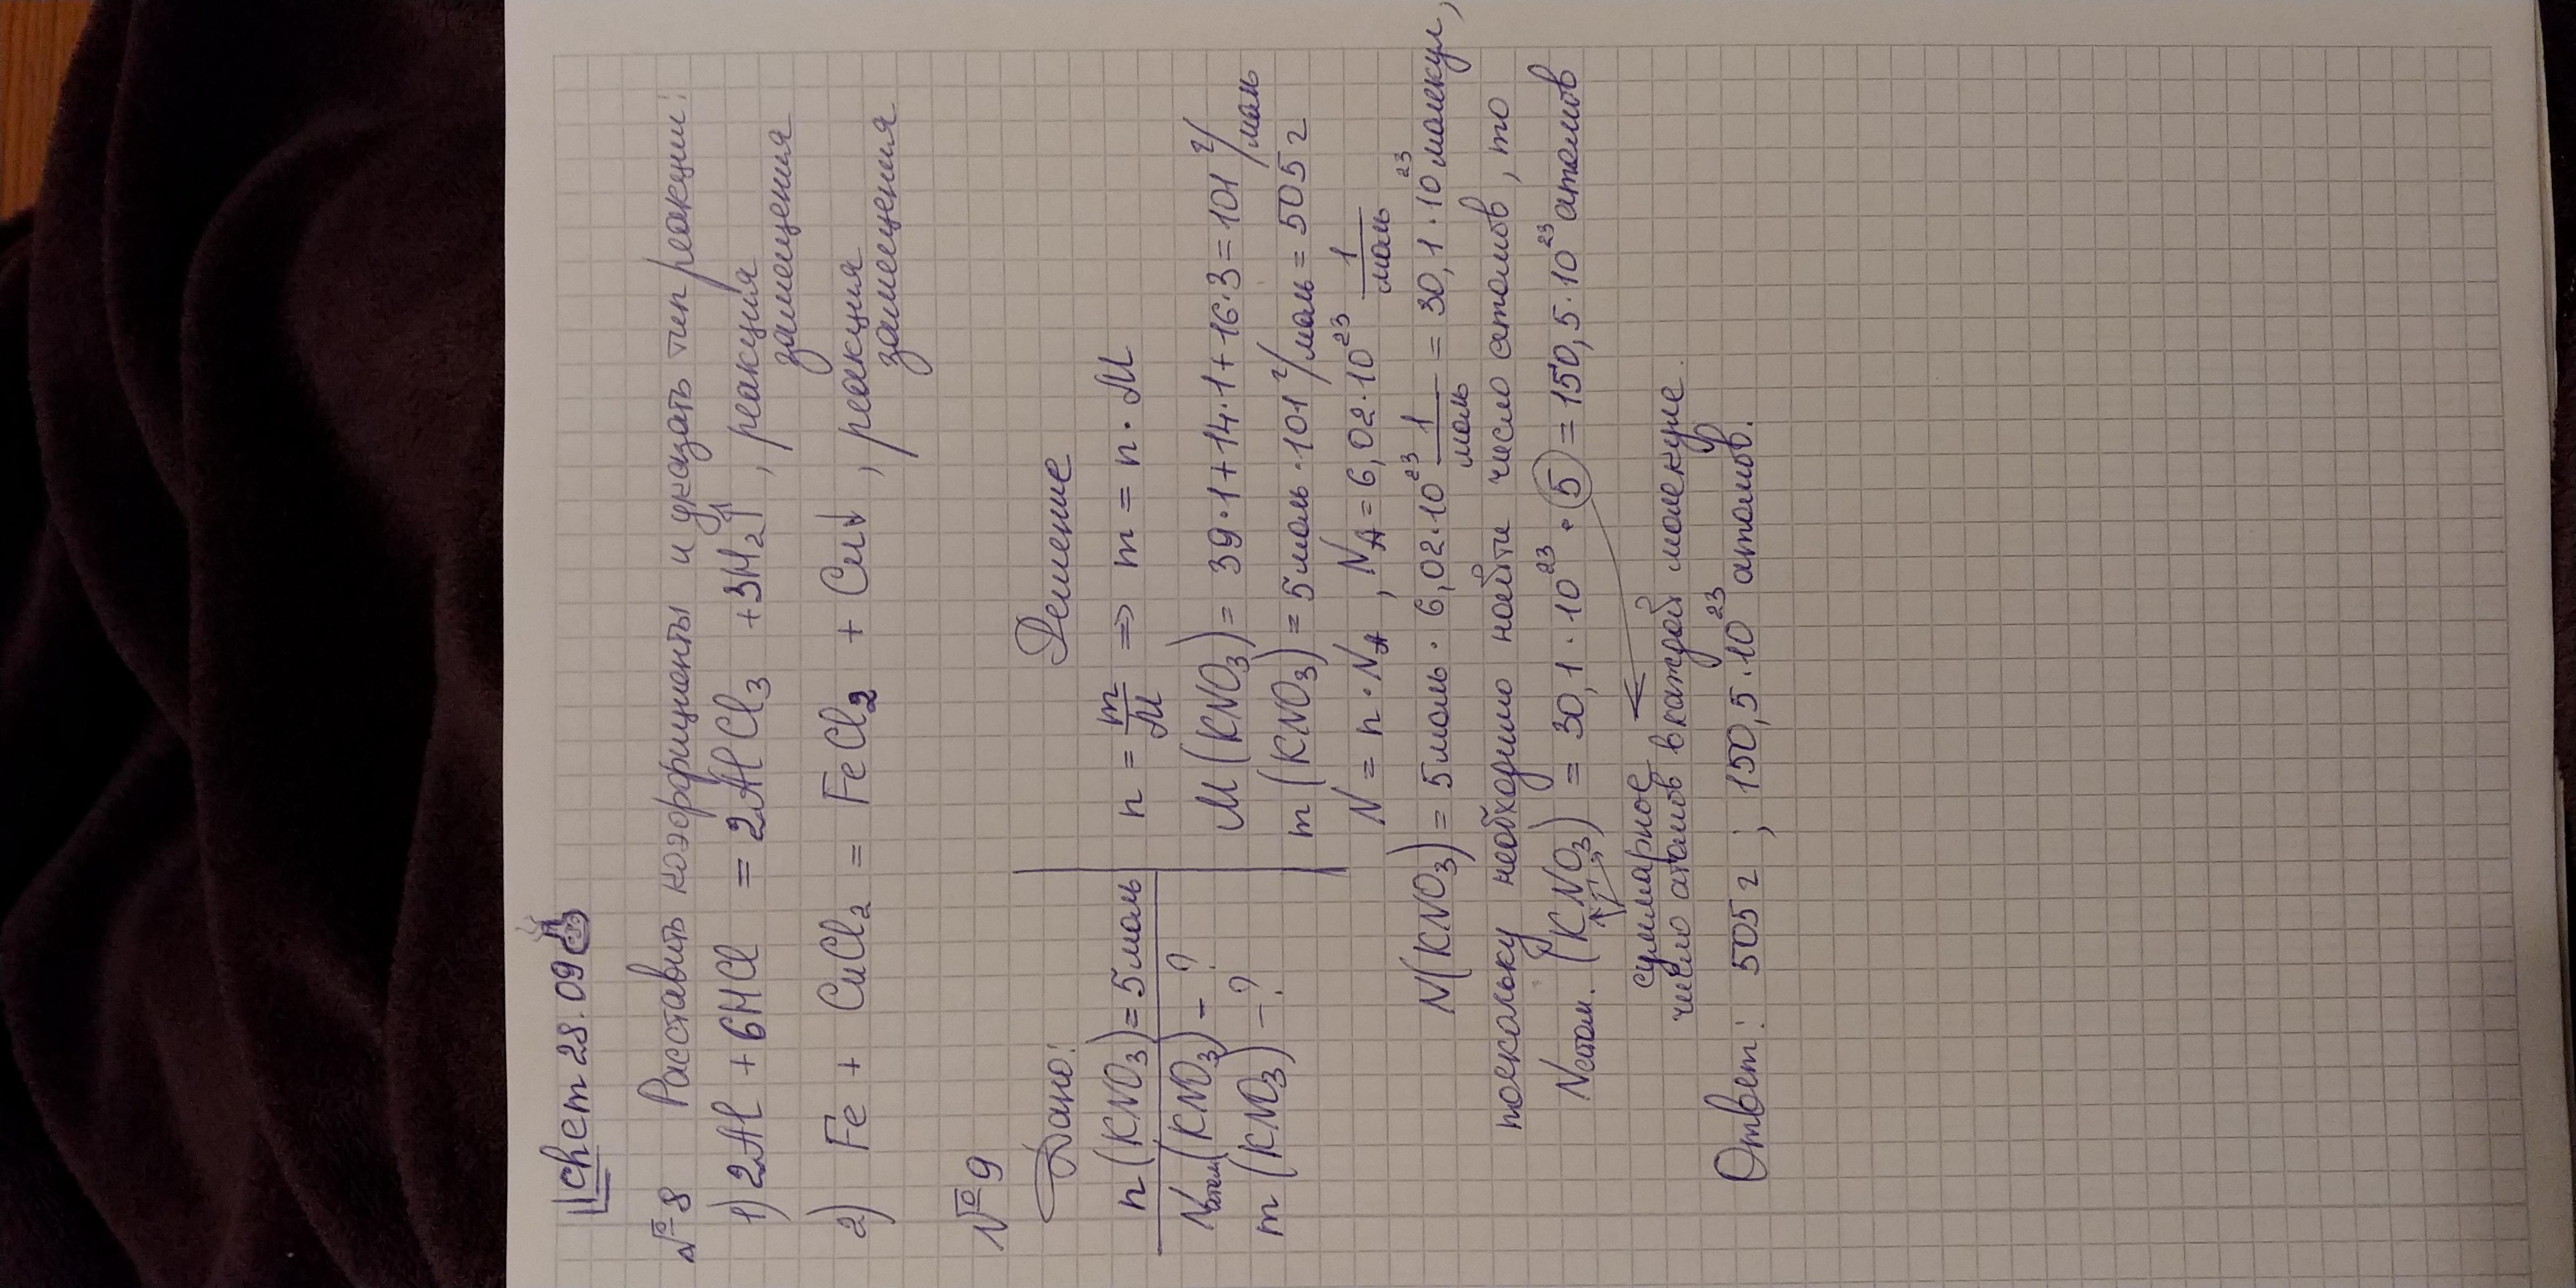 Chem 28.09
№8 Расставить коэффициенты и указать тип реакции:
1) 2Al + 6HCl = 2AlCl₃ + 3H₂↑, реакция замещения
2) Fe + CuCl₂ = FeCl₂ + Cu↓, реакция замещения
№9
Дано:
n(KNO₃) = 5 моль
Nатом(KNO₃) – ?
m(KNO₃) – ?
Решение
n = m/M ⇒ m = n · M
M(KNO₃) = 39·1 + 14·1 + 16·3 = 101 г/моль
m(KNO₃) = 5 моль · 101 г/моль = 505 г
N = n · N_A, N_A = 6,02 · 10²³ 1/моль
N(KNO₃) = 5 моль · 6,02 · 10²³ 1/моль = 30,1 · 10²³ молекул,
поскольку необходимо найти число атомов, то
Nатом. (KNO₃) = 30,1 · 10²³ · 5 = 150,5 · 10²³ атомов
суммарное
число атомов в каждой молекуле.
Ответ: 505 г ; 150,5 · 10²³ атомов.